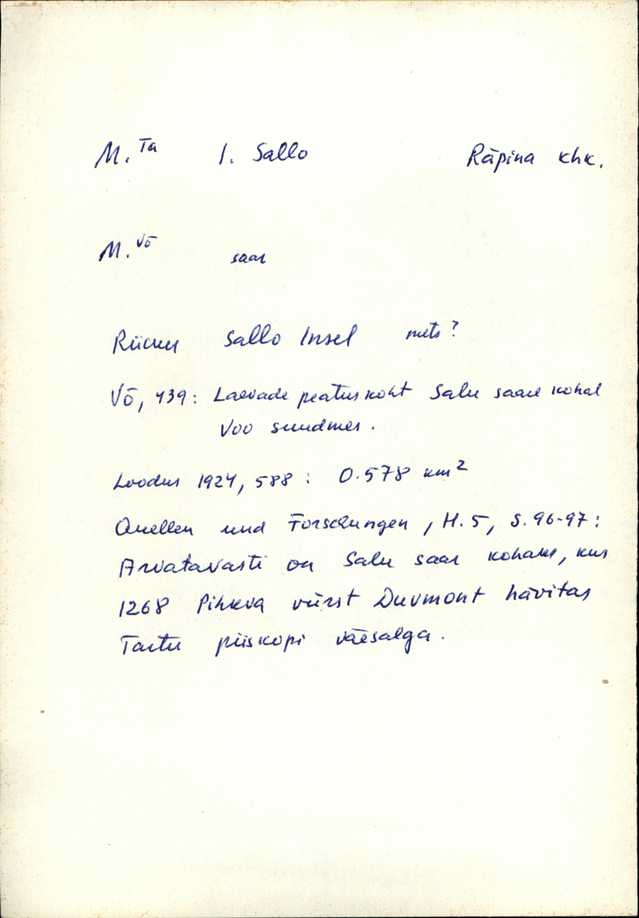 M. Ta I. Sallo Räpina khk.
M. Võ saar
Rücker Sallo Insel mets?
Võ, 439: Laevade peatuskoht Salu saare kohal
Voo suudmes.
Loodus 1924, 588: 0.578 km²
Quellen und Forschungen, H. 5, S. 96-97:
Arvatavasti on Salu saar kohaks, kus
1268 Pihkva vürst Duvmont hävitas
Tartu piiskopi väesalga.